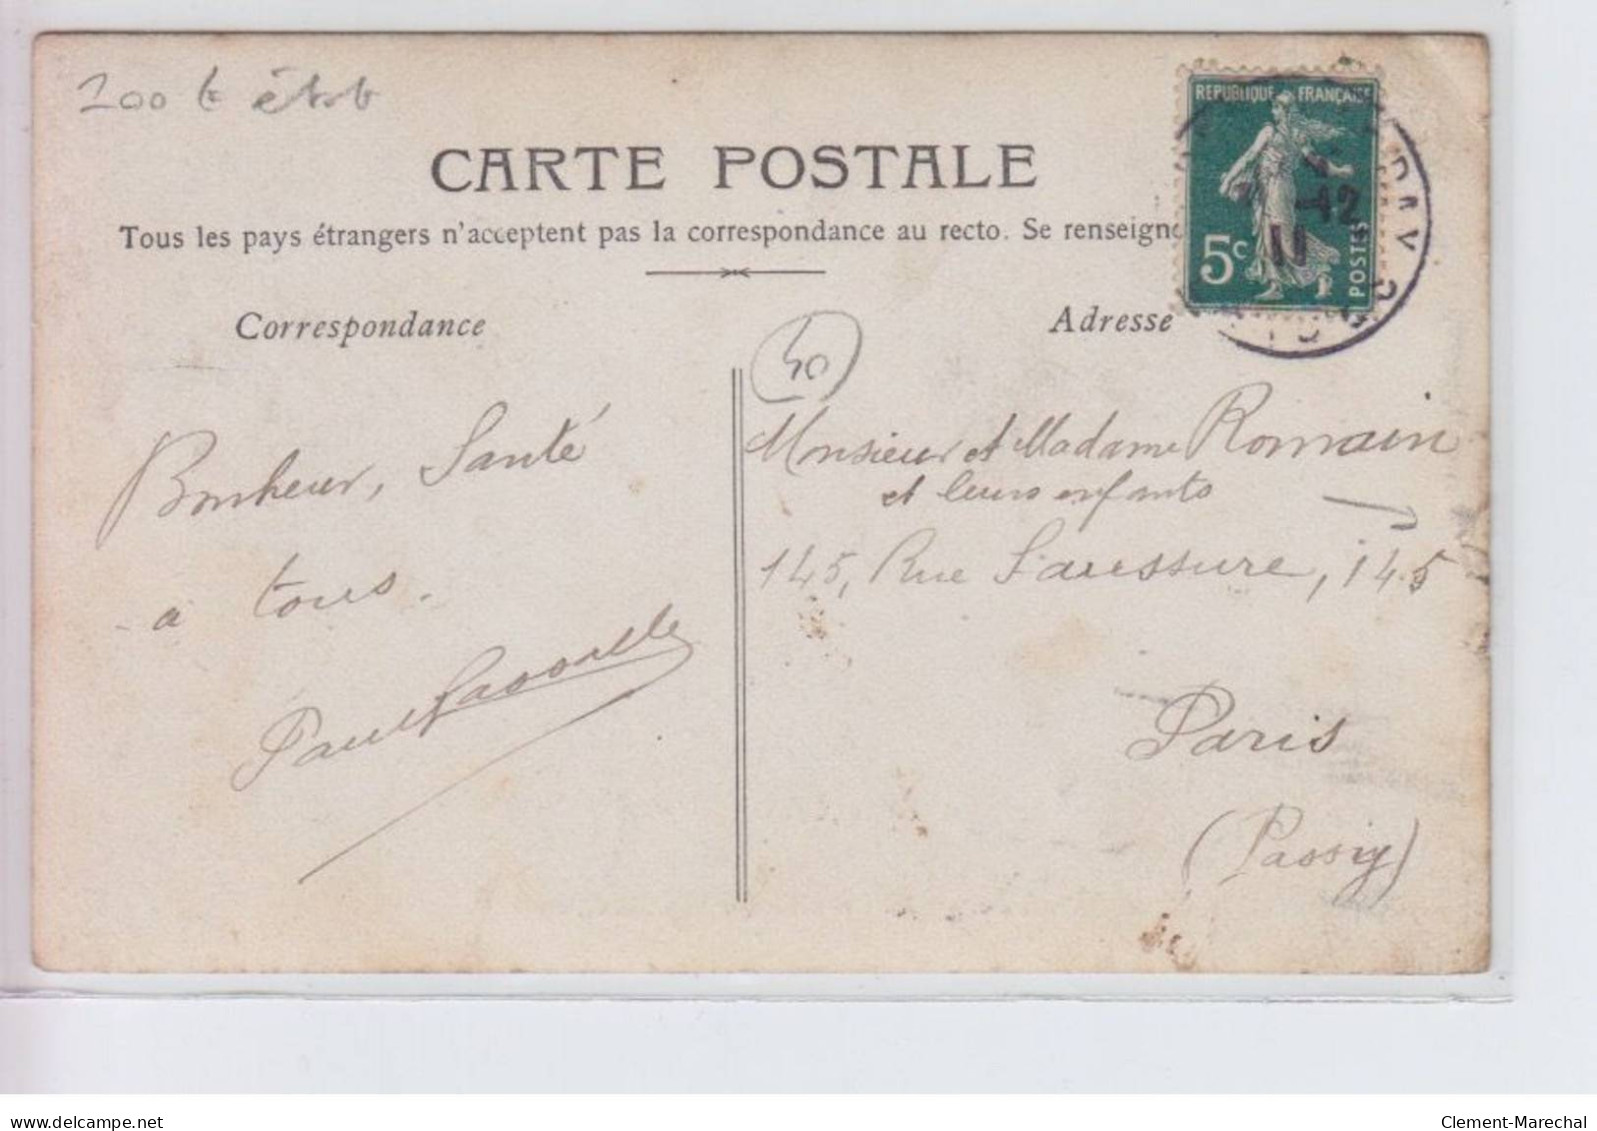 200 
CARTE POSTALE
Tous les pays étrangers n'acceptent pas la correspondance au recto. Se renseigne
REPUBLIQUE FRANÇAISE
5c
POSTES
-12
11
Correspondance
Adresse
40
Bonheur, Santé
a tous.
Paul
Monsieur et Madame Romain
et leurs enfants
145, Rue Saussure, 145
Paris
(Passy)
delcampe.net
Clement-Marechal